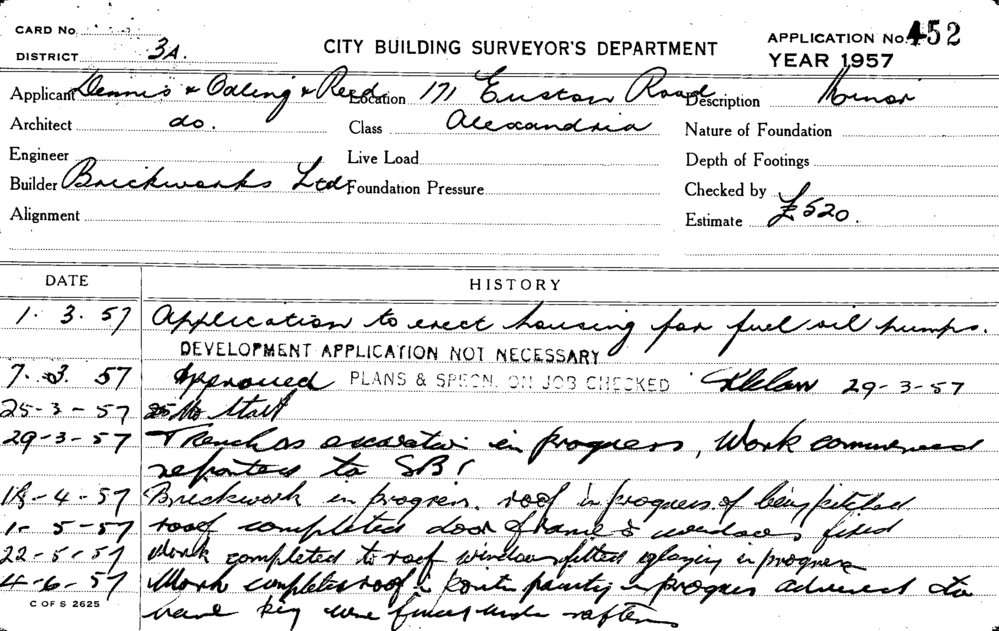 CARD No.
DISTRICT 3A.
CITY BUILDING SURVEYOR'S DEPARTMENT
APPLICATION No. 452
YEAR 1957
Applicant Dennis & Odling & Reed Location 171 Euston Road Description Minor
Architect do. Class Alexandria Nature of Foundation
Engineer Live Load Depth of Footings
Builder Brickworks Ltd Foundation Pressure Checked by
Alignment Estimate £520.
DATE HISTORY
1. 3. 57 Application to erect housing for fuel oil pumps.
DEVELOPMENT APPLICATION NOT NECESSARY
7. 3. 57 Approved PLANS & SPECN. ON JOB CHECKED 29-3-57
25-3-57 No Start
29-3-57 Trenches excavation in progress, Work commenced
reported to SBI
18-4-57 Brickwork in progress. roof in progress of being pitched
1-5-57 roof completed door frame & windows fixed
22-5-57 Work completed to roof windows fitted glazing in progress
4-6-57 Work completed roof in painting in progress advised to
have wire fixed under rafters
C OF S 2625